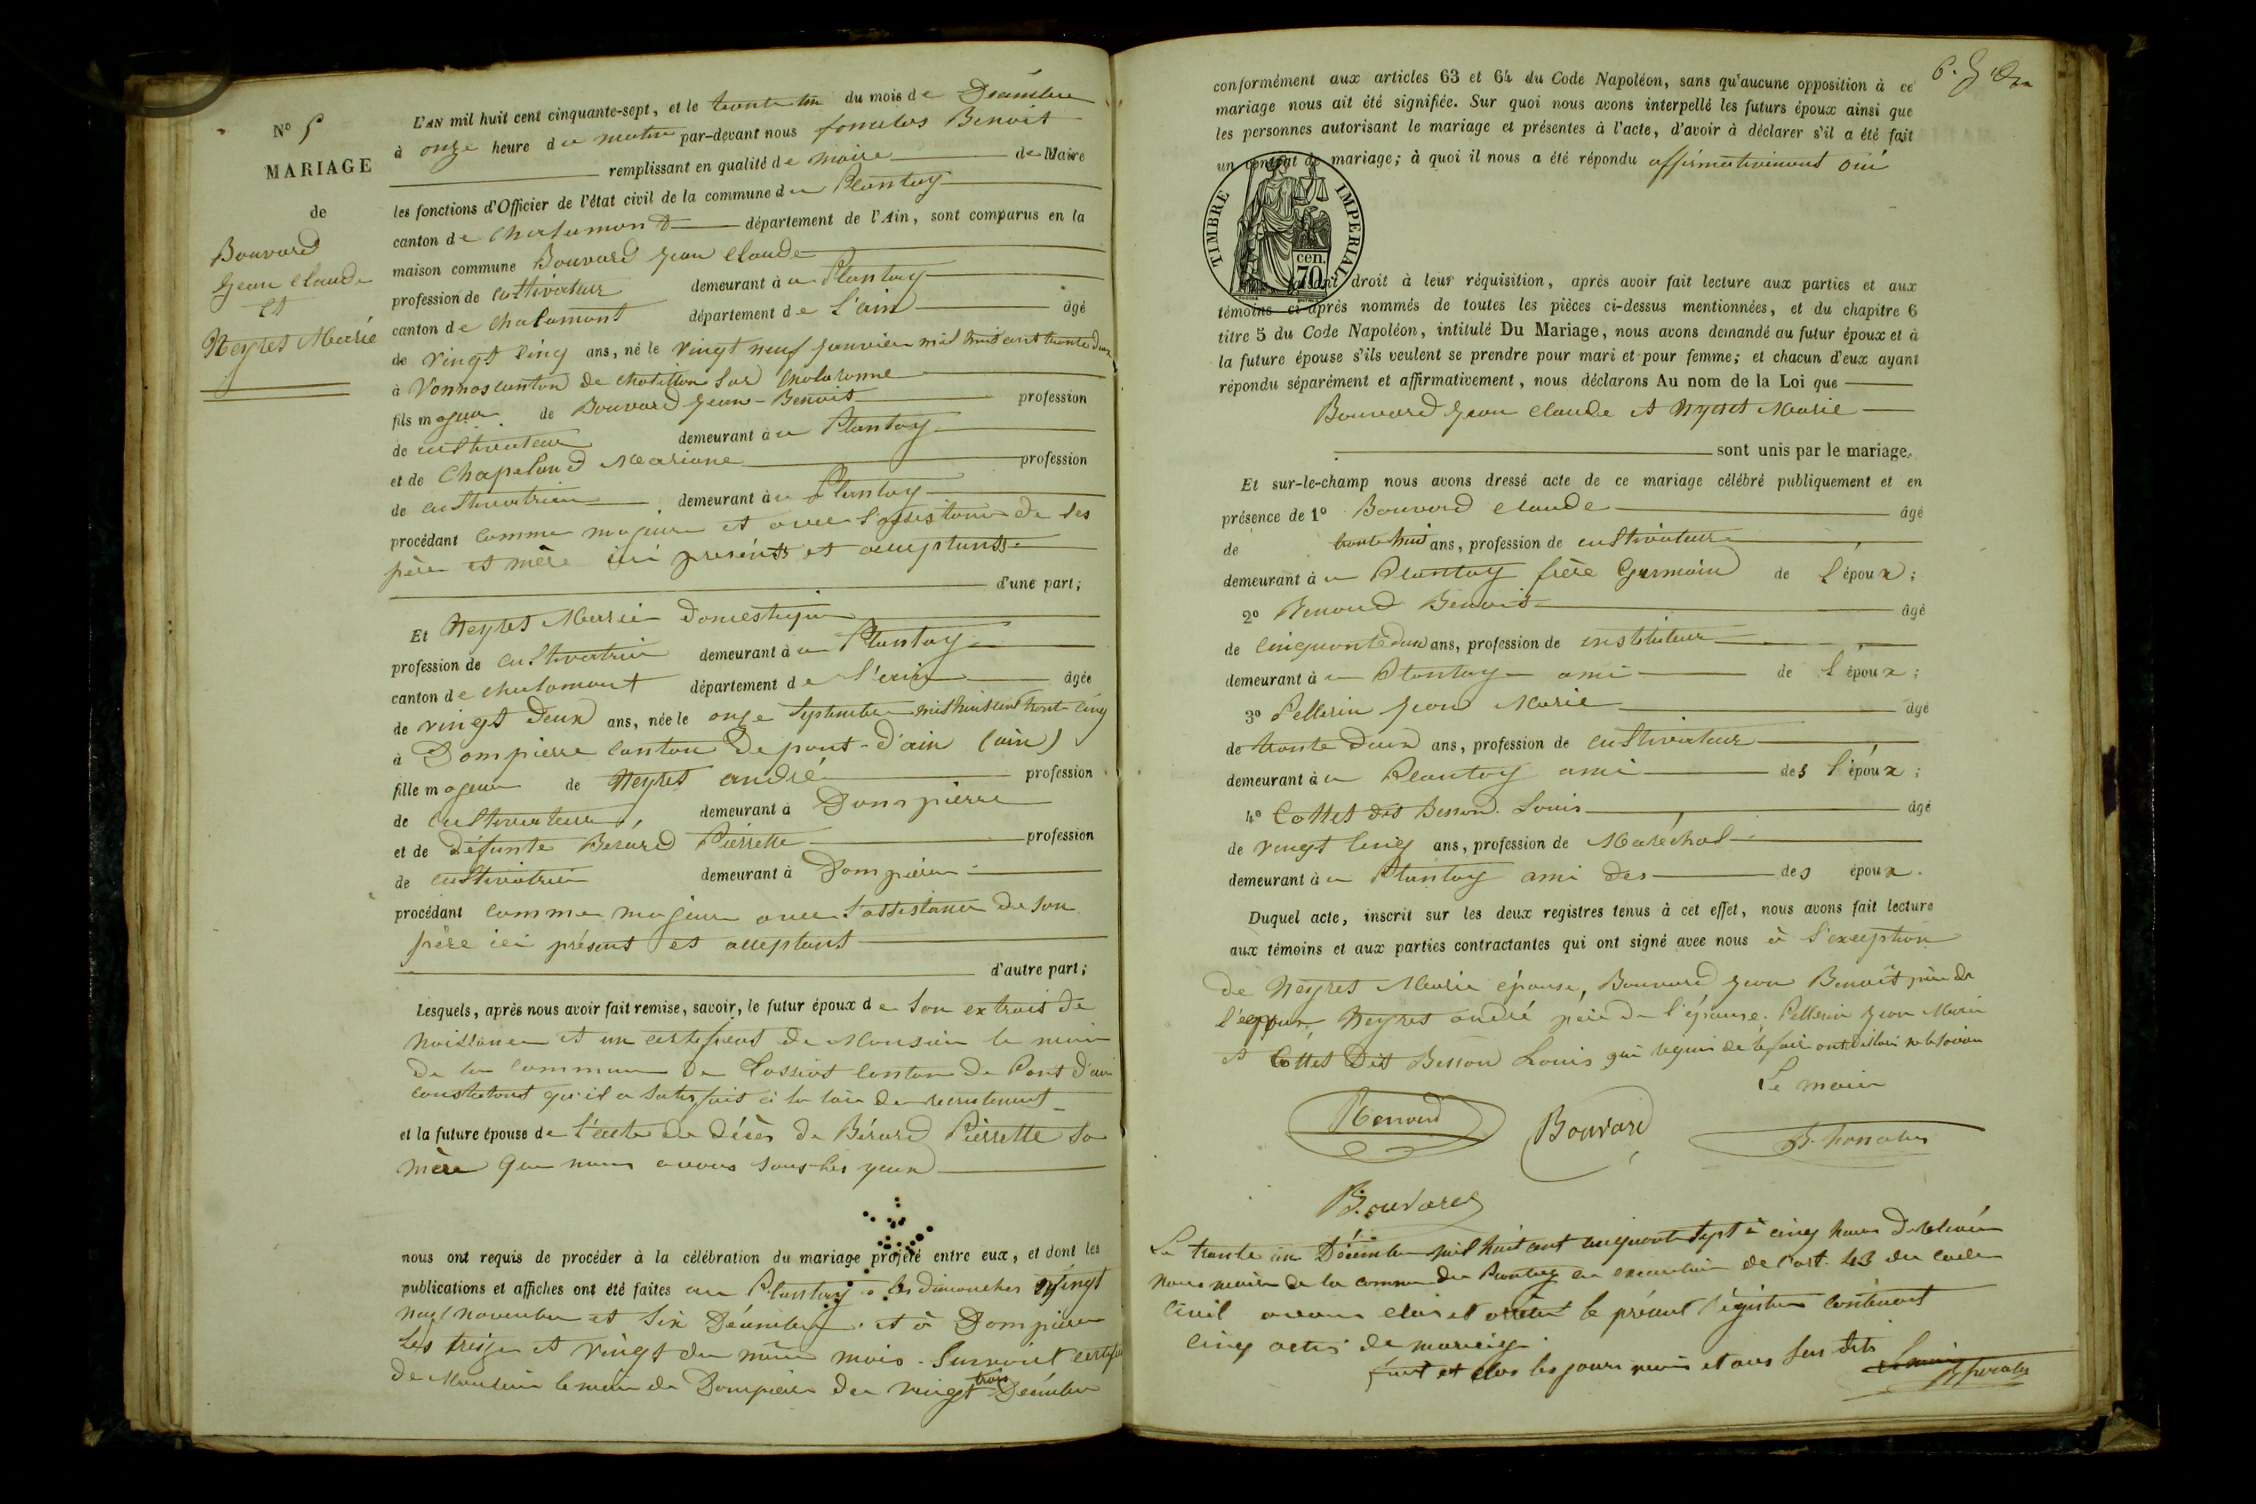 N° 5
MARIAGE
de
Bouvard
Jean Claude
et
Neyret Marie
L'AN mil huit cent cinquante-sept, et le trente un du mois de Décembre
à onze heure du matin par-devant nous Benoit
remplissant en qualité de maire de Maire
les fonctions d'Officier de l'état civil de la commune du Plantay
canton de Chalamont département de l'Ain, sont comparus en la
maison commune Bouvard Jean Claude
profession de cultivateur demeurant à u Plantay
canton de Chalamont département de L'ain âgé
de vingt cinq ans, né le vingt neuf janvier mil huit cent trente deux
à Vonnas canton de chatillon sur chalaronne
fils majeur de Bouvard Jean-Benoit profession
de cultivateur demeurant à u Plantay
et de Chapeland Mariane profession
de cultivatrice demeurant à u Plantay
procédant comme majeur et avec l'assistance de ses
père et mère ici présents et acceptants
d'une part;
Et Neyret Marie Domestique
profession de cultivatrice demeurant à u Plantay
canton de chalamont département de l'ain âgée
de vingt Deux ans, née le onze Septembre mil huit cent trente cinq
à Dompierre canton de pont-d'ain (ain)
fille majeure de Neyret andré profession
de cultivateur, demeurant à Dompierre
et de défunte Bérard Pierrette profession
de cultivatrice demeurant à Dompierre
procédant comme majeure avec l'assistance de son
père ici présent et acceptant
d'autre part;
Lesquels, après nous avoir fait remise, savoir, le futur époux de son extrait de
naissance et un certificat de Monsieur le maire
de la commune de canton de Pont d'ain
constatant qu'il a satisfait à la loi de recrutement
et la future épouse de l'acte de décès de Bérard Pierrette sa
mère que nous avons sous les yeux
nous ont requis de procéder à la célébration du mariage projeté entre eux, et dont les
publications et affiches ont été faites au Plantay les dimanches vingt
neuf novembre et six Décembre et à Dompierre
les treize et vingt du même mois. Suivant certificat
de Monsieur le maire de Dompierre du vingt trois Décembre
conformément aux articles 63 et 64 du Code Napoléon, sans qu'aucune opposition à ce
mariage nous ait été signifiée. Sur quoi nous avons interpellé les futurs époux ainsi que
les personnes autorisant le mariage et présentes à l'acte, d'avoir à déclarer s'il a été fait
un contrat de mariage; à quoi il nous a été répondu affirmativement oui
TIMBRE IMPERIAL
70 cen.
Faisant droit à leur réquisition, après avoir fait lecture aux parties et aux
témoins ci-après nommés de toutes les pièces ci-dessus mentionnées, et du chapitre 6
titre 5 du Code Napoléon, intitulé Du Mariage, nous avons demandé au futur époux et à
la future épouse s'ils veulent se prendre pour mari et pour femme; et chacun d'eux ayant
répondu séparément et affirmativement, nous déclarons Au nom de la Loi que
Bouvard Jean Claude et Neyret Marie
sont unis par le mariage.
Et sur-le-champ nous avons dressé acte de ce mariage célébré publiquement et en
présence de 1° Bouvard Claude âgé
de trente huit ans, profession de cultivateur
demeurant à u Plantay frère Germain de l'époux;
2° Renoud Benoit âgé
de cinquante deux ans, profession de instituteur
demeurant à u Plantay ami de l'époux;
3° Pellerin Jean Marie âgé
de trente deux ans, profession de cultivateur
demeurant à u Plantay ami des l'époux;
4° Cottet dit Besson Louis âgé
de vingt cinq ans, profession de Maréchal
demeurant à u Plantay ami des des époux.
Duquel acte, inscrit sur les deux registres tenus à cet effet, nous avons fait lecture
aux témoins et aux parties contractantes qui ont signé avec nous à l'exception
de Neyret Marie épouse, Bouvard Jean Benoit père de
l'époux Neyret andré père de l'épouse. Pellerin Jean Marie
et Cottet Dit Besson Louis qui requis de le faire ont dit ne le savoir
Le maire
Renoud
Bouvard
Bouvard
Le trente un Décembre mil huit cent cinquante sept à cinq heures de relevée
nous maire de la commune du Plantay en exécution de l'art. 43 du code
civil avons clos et arrêté le présent registre contenant
cinq actes de mariage.
fait et clos les jours mois et ans susdits